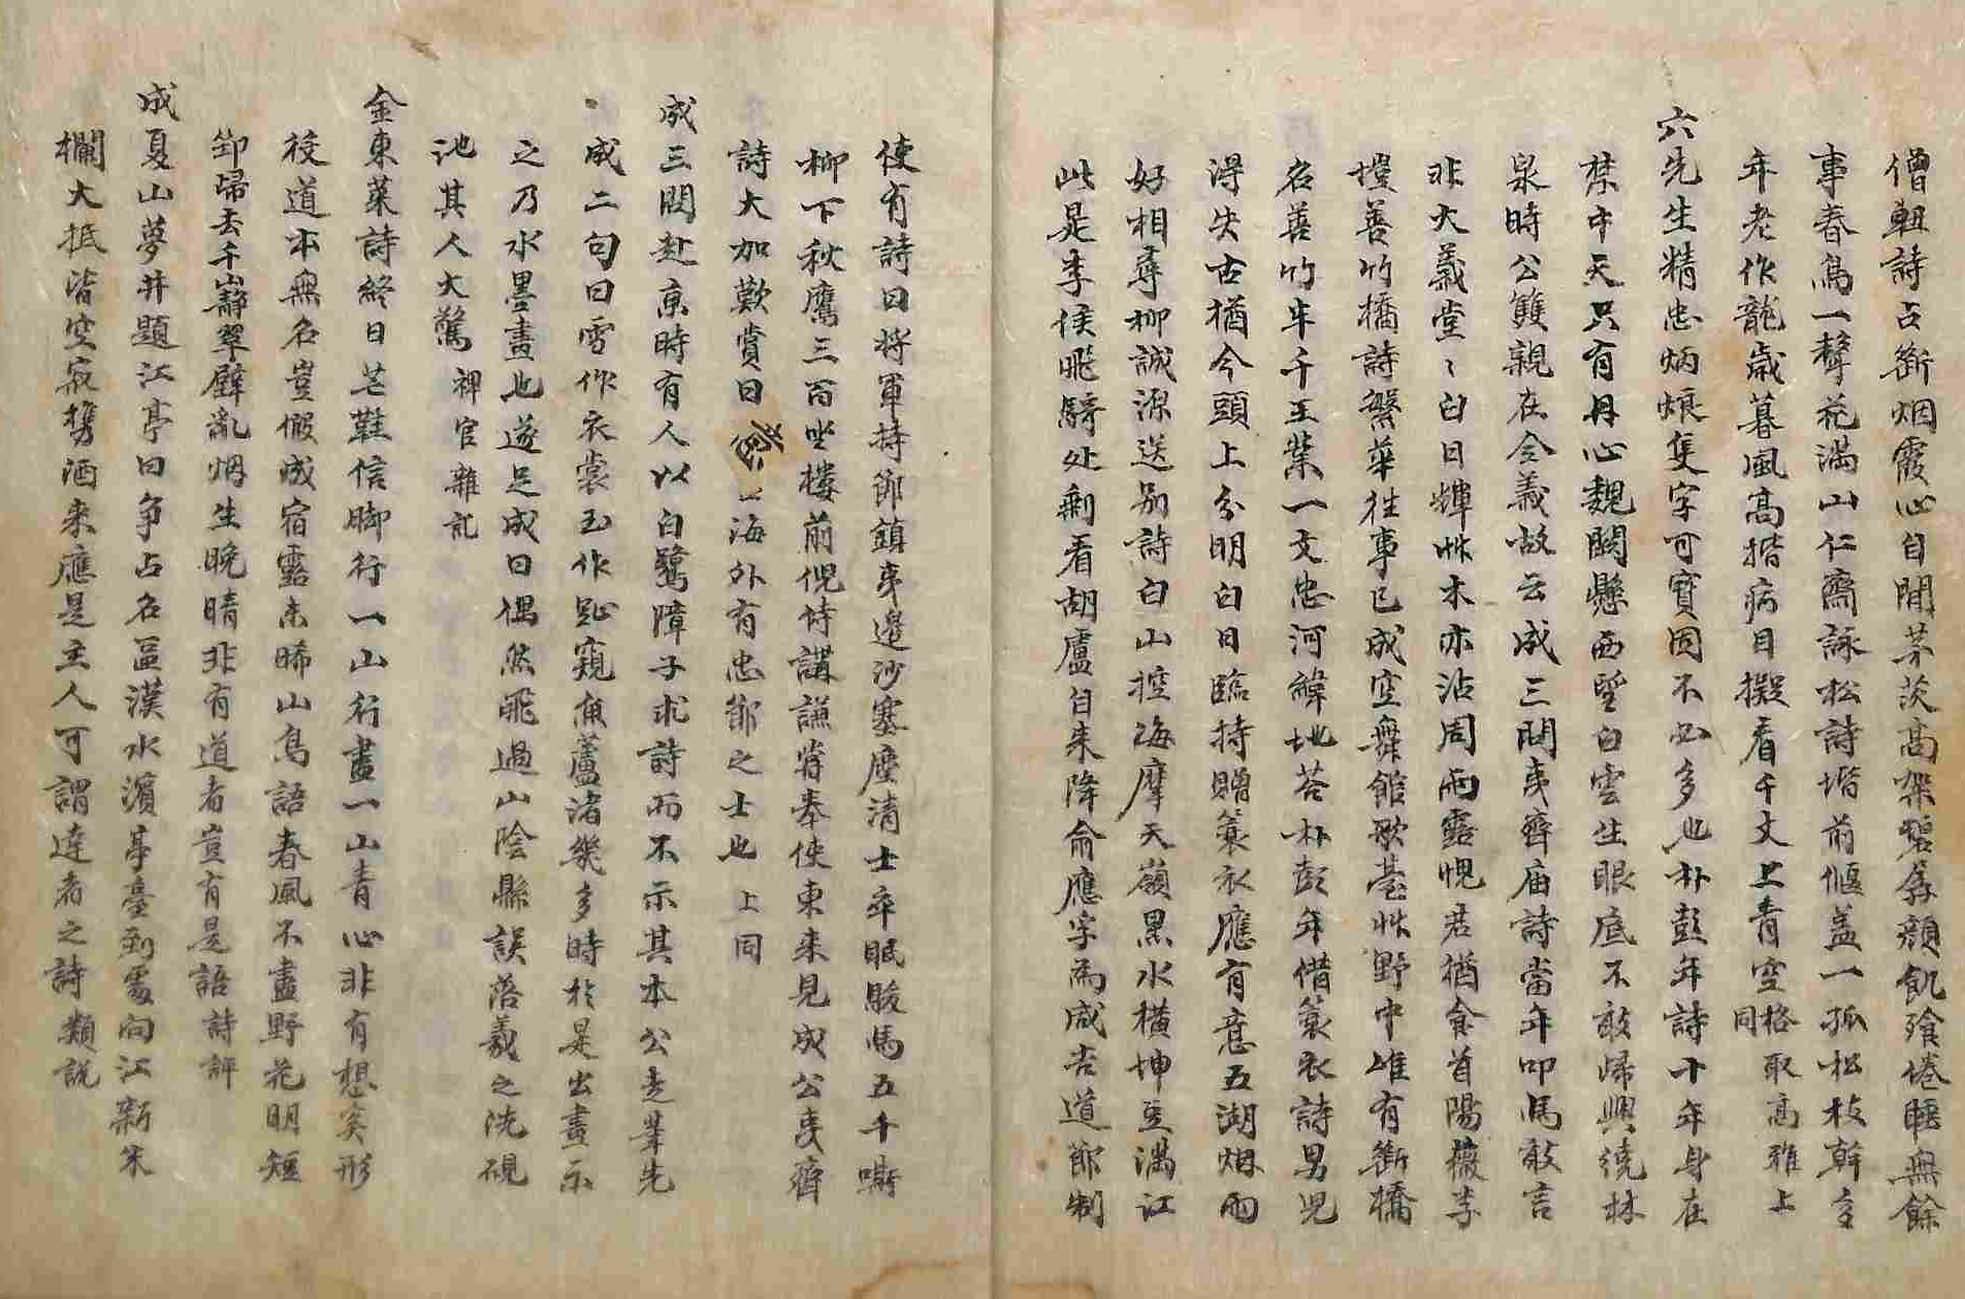 僧軸詩占斷烟霞心自閒茅茨高架碧孱顔飢飱倦睡無餘
事春鳥一聲花滿山仁齋詠松詩堦前偃盖一孤松枝幹多
年老作龍歲暮風高揩病目擬看千丈上青空格取高雅上同
六先生精忠炳烺隻字可寶固不必多也朴彭年詩十年身在
禁中天只有丹心魏闕懸西望白雲生眼底不敢歸興繞林
泉時公雙親在全義故云成三問夷齊庙詩當年叩馬敢言
非大義堂〻白日輝艸木亦沾周雨露愧君猶食首陽薇李
塏善竹橋詩繁華徃事已成空舞館歌臺艸野中唯有斷橋
名善竹半千王業一文忠河緯地荅朴彭年借簑衣詩男兒
淂失古猶今頭上分明白日臨持贈簑衣應有意五湖烟雨
好相尋柳誠源送别詩白山控海摩天嶺黑水橫坤豆滿江
此是李侯飛騎处剩看胡虜自来降俞應孚爲咸吉道節制
使有詩曰將軍持節鎮夷邊沙塞塵清士卒眠駿馬五千嘶
柳下秋鷹三百坐樓前倪侍講謙甞奉使東来見成公夷齊
詩大加歎賞曰海外有忠節之士也上同
成三問赴京時有人以白鷺障子求詩而不示其本公走筆先
成二句曰雪作衣裳玉作趾窺魚蘆渚幾多時於是出畫示
之乃水墨畫也遂足成曰偶然飛過山陰縣誤落羲之洗硯
池其人大驚 稗官雜記
金東萊詩終日芒鞋信脚行一山行盡一山青心非有想奚形
役道本無名豈假成宿露未晞山鳥語春風不盡野花明短
節歸去千山靜翠壁亂烟生晚晴非有道者豈有是語詩評
成夏山夢井題江亭曰争占名區漢水濱亭臺到處向江新朱
欄大抵皆空寂携酒来應是主人可謂達者之詩類說